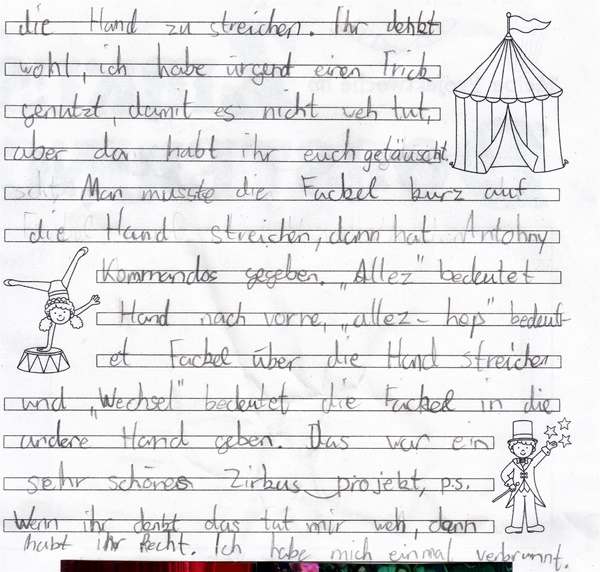 die Hand zu streichen. Ihr denkt
wohl, ich habe irgend einen Trick
genutzt, damit es nicht weh tut,
aber da habt ihr euch getäuscht.
Man musste die Fackel kurz auf
die Hand streichen, dann hat Antohny
Kommandos gegeben. „Allez" bedeutet
Hand nach vorne, „allez - hop" bedeut-
et Fackel über die Hand streichen
und „Wechsel" bedeutet die Fackel in die
andere Hand geben. Das war ein
sehr schönes Zirkus projekt, p.s.
Wenn ihr denkt das tut mir weh, dann
habt ihr Recht. Ich habe mich einmal verbrannt.